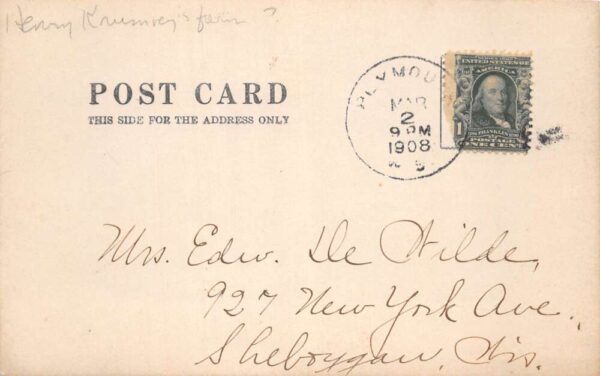 Henry Krumrey's farm ?
POST CARD
THIS SIDE FOR THE ADDRESS ONLY
PLYMOU
MAR
2
9 PM
1908
WIS
UNITED STATES OF
AMERICA
FRANKLIN
POSTAGE
1 ONE CENT
Mrs. Edw. De Wilde,
927 New York Ave.,
Sheboygan, Wis.